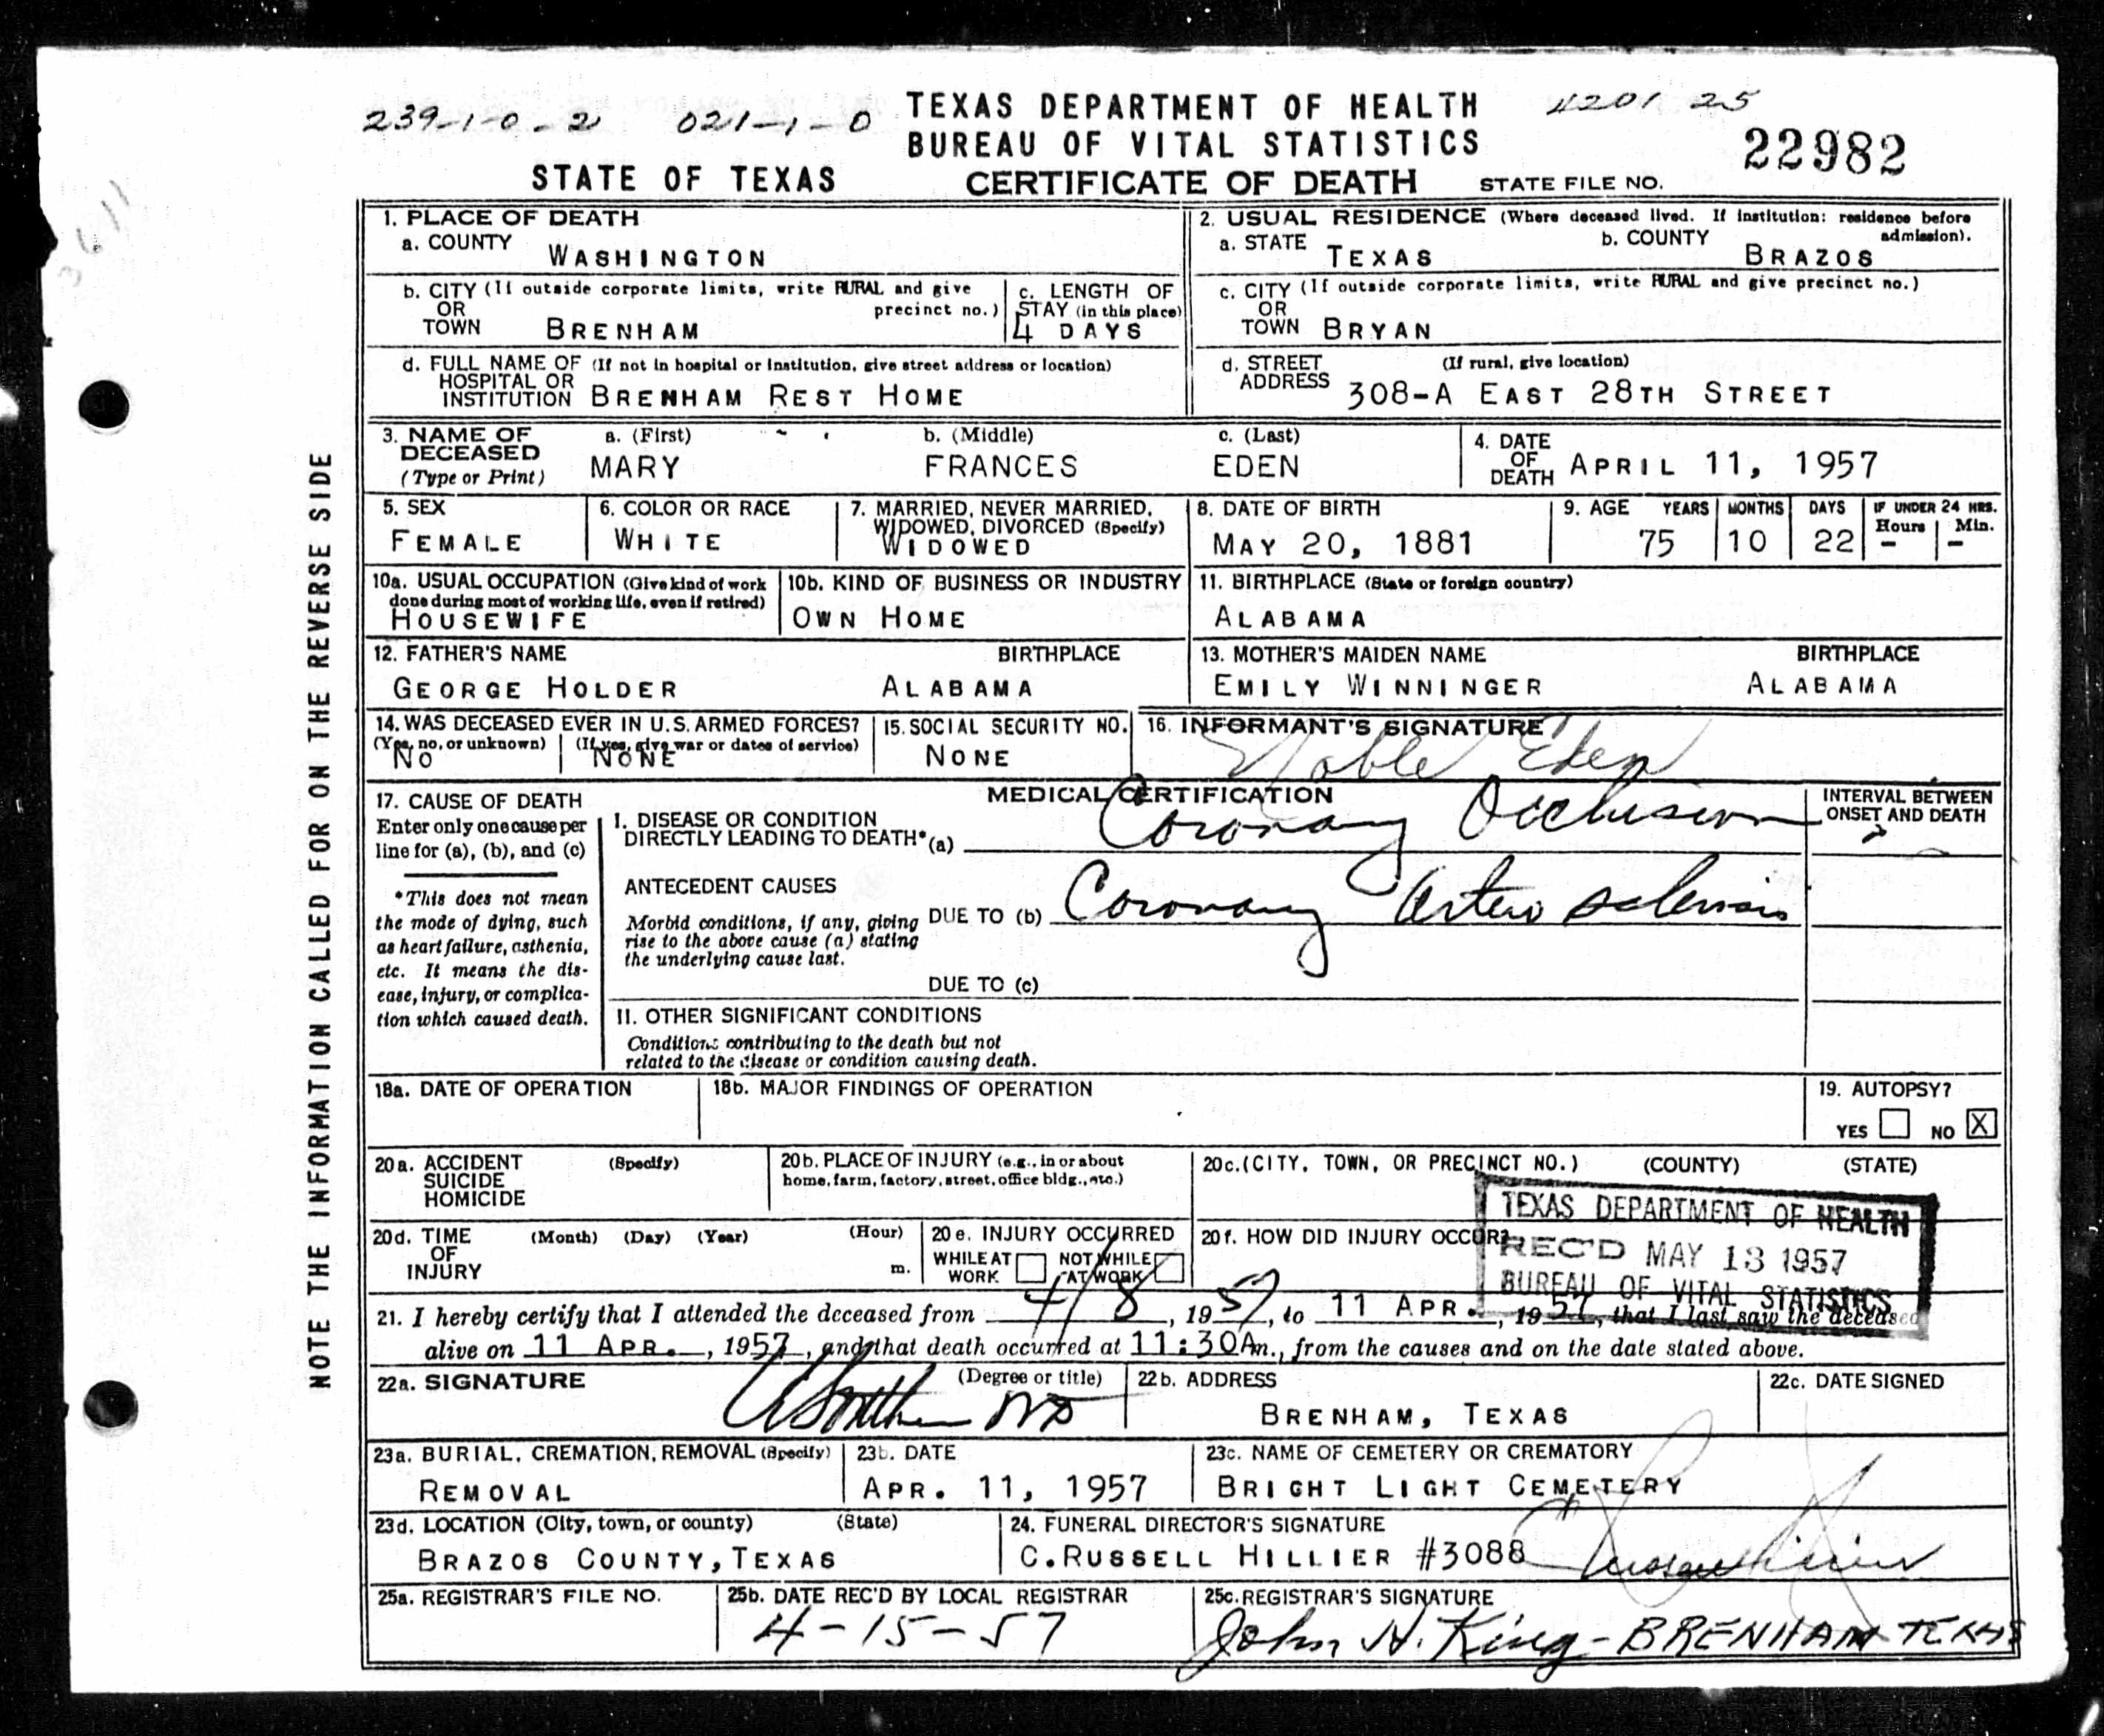 239-1-0-2 021-1-0 TEXAS DEPARTMENT OF HEALTH 4201 25
BUREAU OF VITAL STATISTICS 22982
STATE OF TEXAS CERTIFICATE OF DEATH STATE FILE NO.
NOTE THE INFORMATION CALLED FOR ON THE REVERSE SIDE
1. PLACE OF DEATH
a. COUNTY WASHINGTON
2. USUAL RESIDENCE (Where deceased lived. If institution: residence before admission).
a. STATE TEXAS b. COUNTY BRAZOS
b. CITY (If outside corporate limits, write RURAL and give precinct no.)
OR
TOWN BRENHAM
c. LENGTH OF
STAY (in this place)
4 DAYS
c. CITY (If outside corporate limits, write RURAL and give precinct no.)
OR
TOWN BRYAN
d. FULL NAME OF (If not in hospital or institution, give street address or location)
HOSPITAL OR
INSTITUTION BRENHAM REST HOME
d. STREET (If rural, give location)
ADDRESS 308-A EAST 28TH STREET
3. NAME OF DECEASED (Type or Print)
a. (First) b. (Middle) c. (Last)
MARY FRANCES EDEN
4. DATE OF DEATH APRIL 11, 1957
5. SEX
FEMALE
6. COLOR OR RACE
WHITE
7. MARRIED, NEVER MARRIED,
WIDOWED, DIVORCED (Specify)
WIDOWED
8. DATE OF BIRTH
MAY 20, 1881
9. AGE YEARS MONTHS DAYS IF UNDER 24 HRS.
Hours Min.
75 10 22 - -
10a. USUAL OCCUPATION (Give kind of work
done during most of working life, even if retired)
HOUSEWIFE
10b. KIND OF BUSINESS OR INDUSTRY
OWN HOME
11. BIRTHPLACE (State or foreign country)
ALABAMA
12. FATHER'S NAME BIRTHPLACE
GEORGE HOLDER ALABAMA
13. MOTHER'S MAIDEN NAME BIRTHPLACE
EMILY WINNINGER ALABAMA
14. WAS DECEASED EVER IN U.S. ARMED FORCES?
(Yes, no, or unknown) (If yes, give war or dates of service)
NO NONE
15. SOCIAL SECURITY NO.
NONE
16. INFORMANT'S SIGNATURE
Noble Eden
MEDICAL CERTIFICATION
17. CAUSE OF DEATH
Enter only one cause per
line for (a), (b), and (c)
*This does not mean
the mode of dying, such
as heart failure, asthenia,
etc. It means the dis-
ease, injury, or complica-
tion which caused death.
I. DISEASE OR CONDITION
DIRECTLY LEADING TO DEATH* (a) Coronary Occlusion
INTERVAL BETWEEN
ONSET AND DEATH
?
ANTECEDENT CAUSES
Morbid conditions, if any, giving
rise to the above cause (a) stating
the underlying cause last.
DUE TO (b) Coronary Arterio sclerosis
DUE TO (c)
II. OTHER SIGNIFICANT CONDITIONS
Conditions contributing to the death but not
related to the disease or condition causing death.
18a. DATE OF OPERATION
18b. MAJOR FINDINGS OF OPERATION
19. AUTOPSY?
YES NO X
20a. ACCIDENT (Specify)
SUICIDE
HOMICIDE
20b. PLACE OF INJURY (e.g., in or about
home, farm, factory, street, office bldg., etc.)
20c. (CITY, TOWN, OR PRECINCT NO.) (COUNTY) (STATE)
20d. TIME (Month) (Day) (Year) (Hour)
OF
INJURY m.
20e. INJURY OCCURRED
WHILE AT WORK NOT WHILE AT WORK
20f. HOW DID INJURY OCCUR?
TEXAS DEPARTMENT OF HEALTH
REC'D MAY 13 1957
BUREAU OF VITAL STATISTICS
21. I hereby certify that I attended the deceased from 4/8, 1957, to 11 APR., 1957, that I last saw the deceased
alive on 11 APR., 1957, and that death occurred at 11:30A m., from the causes and on the date stated above.
22a. SIGNATURE (Degree or title)
MD
22b. ADDRESS
BRENHAM, TEXAS
22c. DATE SIGNED
23a. BURIAL, CREMATION, REMOVAL (Specify)
REMOVAL
23b. DATE
APR. 11, 1957
23c. NAME OF CEMETERY OR CREMATORY
BRIGHT LIGHT CEMETERY
23d. LOCATION (City, town, or county) (State)
BRAZOS COUNTY, TEXAS
24. FUNERAL DIRECTOR'S SIGNATURE
C. RUSSELL HILLIER #3088 C Russell Hillier
25a. REGISTRAR'S FILE NO.
25b. DATE REC'D BY LOCAL REGISTRAR
4-15-57
25c. REGISTRAR'S SIGNATURE
John H. King - BRENHAM TEXAS